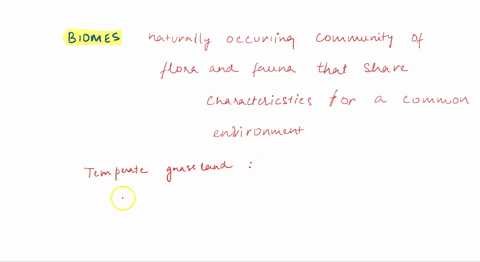 BIOMES naturally occurring community of
flora and fauna that share
characteristics for a common
environment
Temperate grassland :